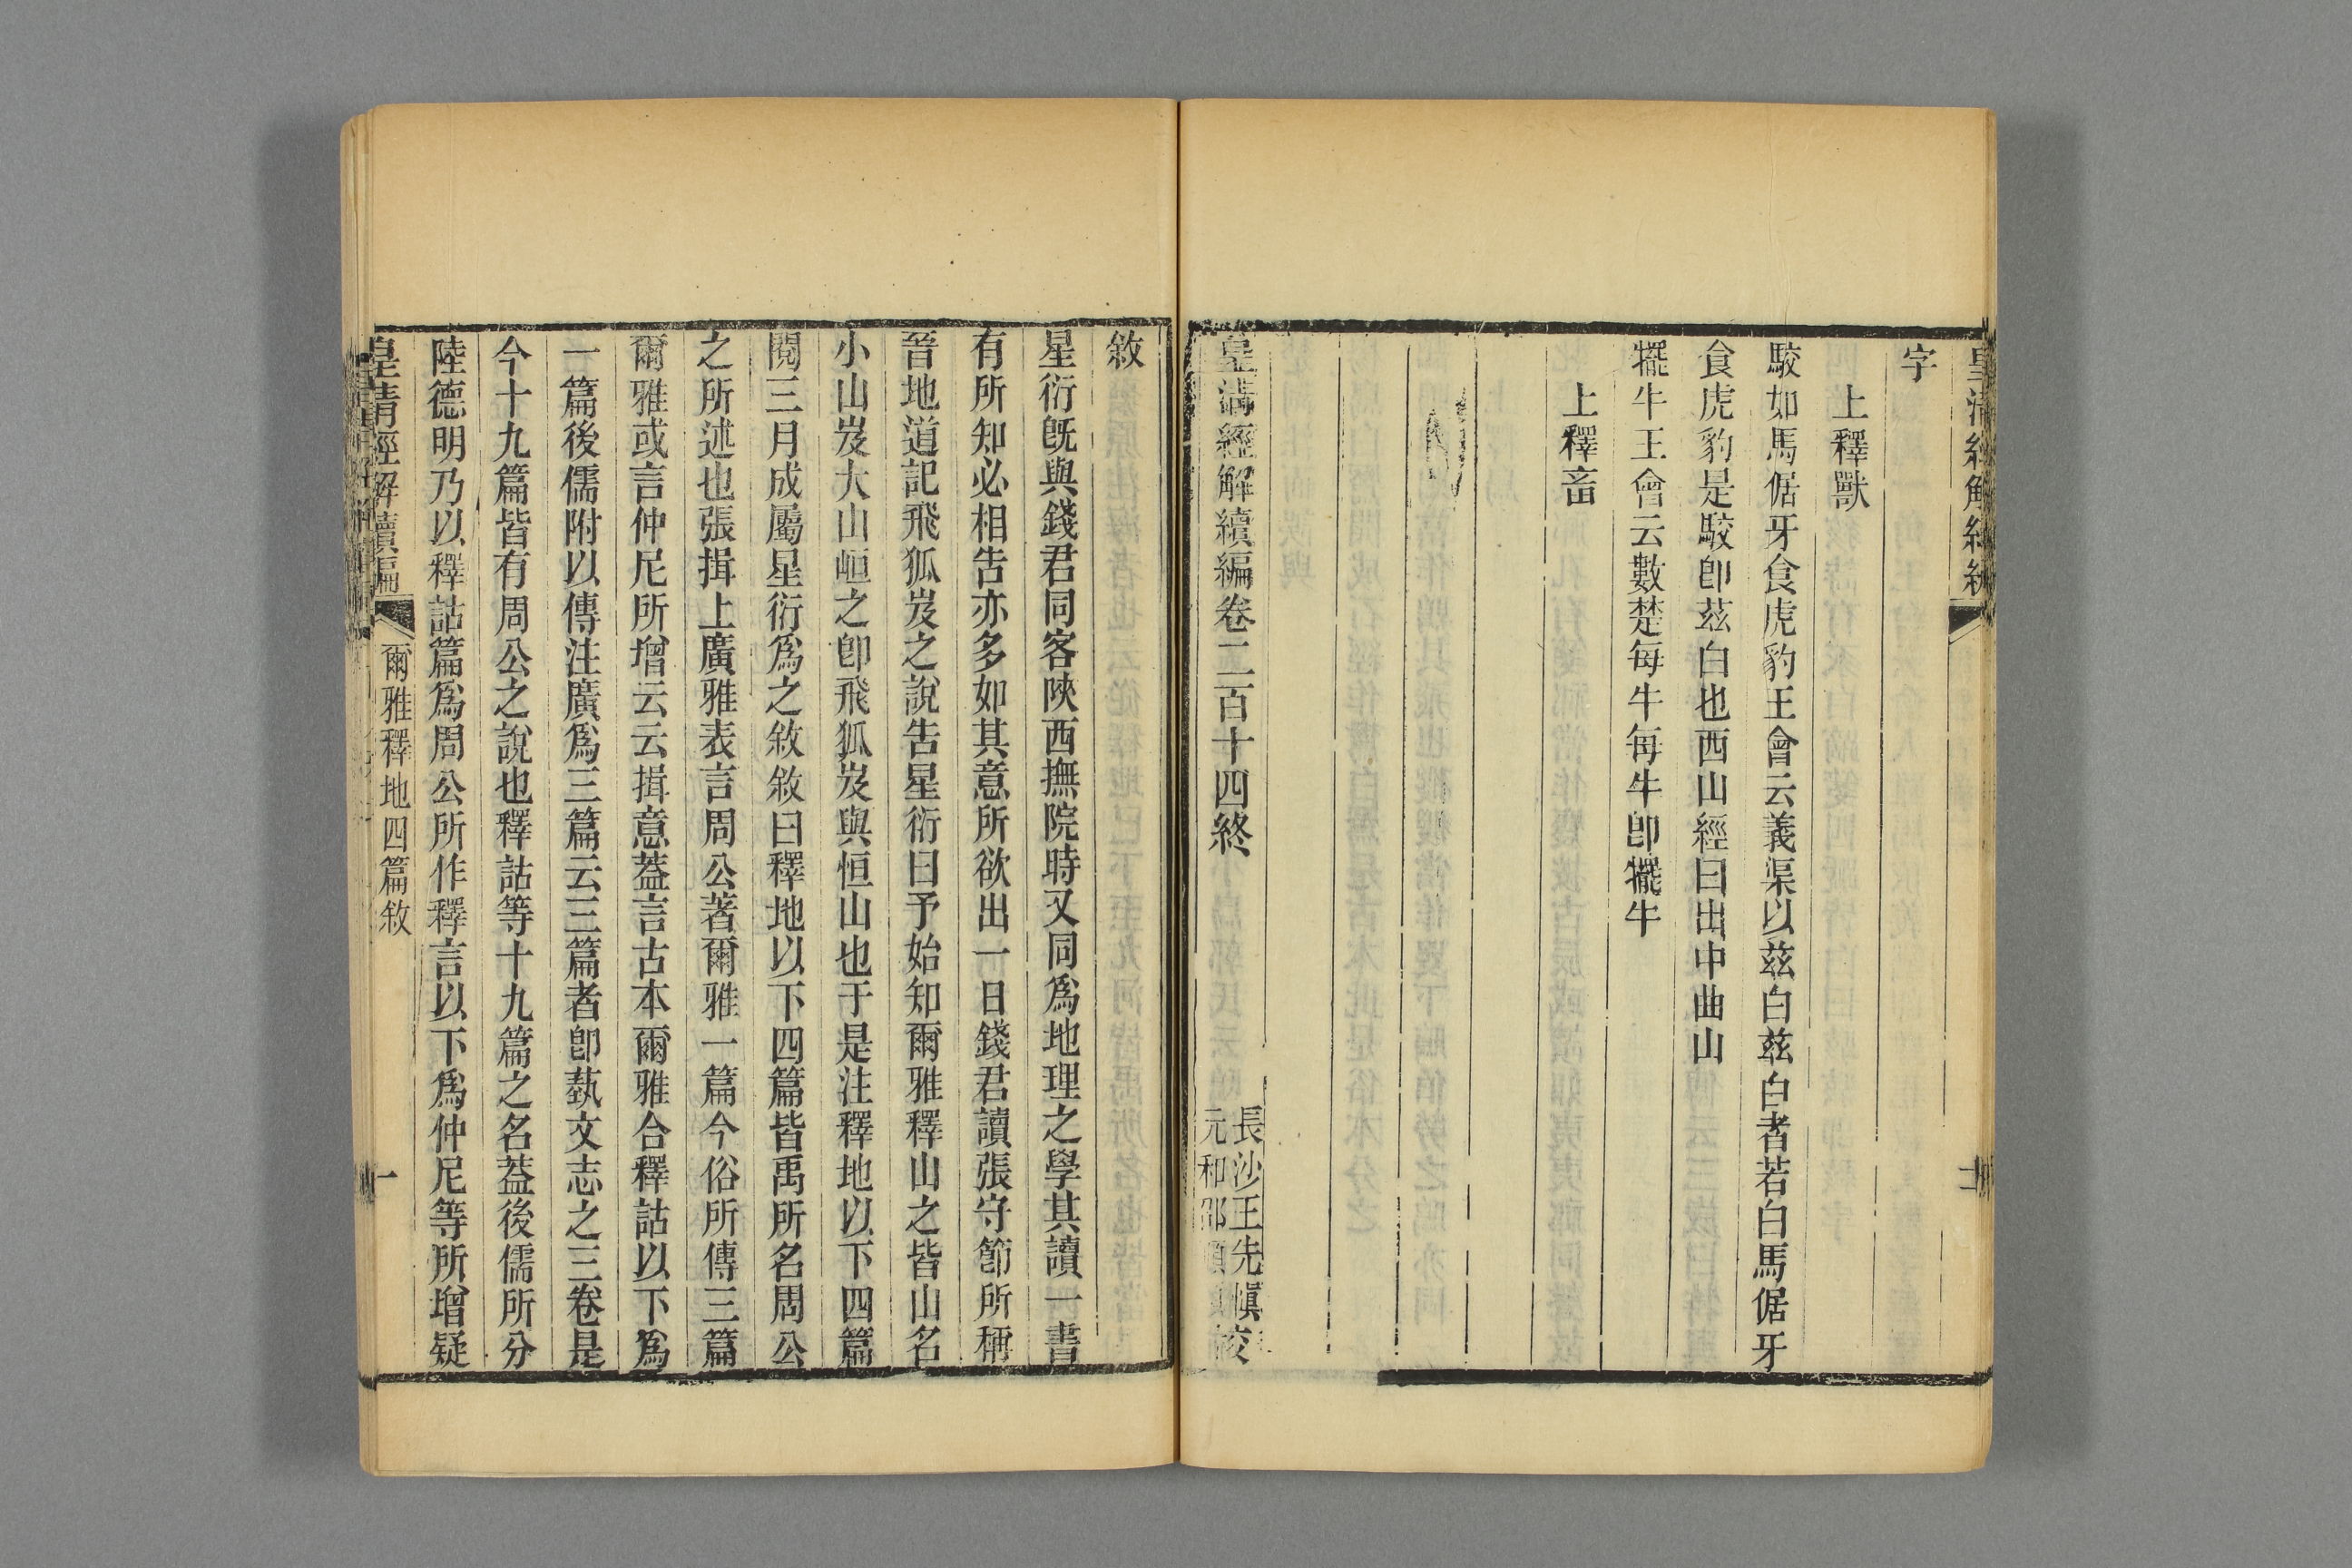 字
上釋獸
駮如馬倨牙食虎豹王會云義渠以茲白茲白者若白馬倨牙
食虎豹是駮卽茲白也西山經曰出中曲山
犤牛王會云數楚每牛每牛卽犤牛
上釋畜
皇清經解續編卷二百十四終
長沙王先愼校
敘
星衍旣與錢君同客陝西撫院時又同爲地理之學其讀一書
有所知必相告亦多如其意所欲出一日錢君讀張守節所稱
晉地道記飛狐岌之說告星衍曰予始知爾雅釋山之皆山名
小山岌大山峘之卽飛狐岌與恒山也于是注釋地以下四篇
閱三月成屬星衍爲之敘敘曰釋地以下四篇皆禹所名周公
之所述也張揖上廣雅表言周公著爾雅一篇今俗所傳三篇
爾雅或言仲尼所增云云揖意葢言古本爾雅合釋詁以下爲
一篇後儒附以傳注廣爲三篇云三篇者卽蓺文志之三卷是
今十九篇皆有周公之說也釋詁等十九篇之名葢後儒所分
陸德明乃以釋詁篇爲周公所作釋言以下爲仲尼等所增疑
皇清經解續編 爾雅釋地四篇敘 一